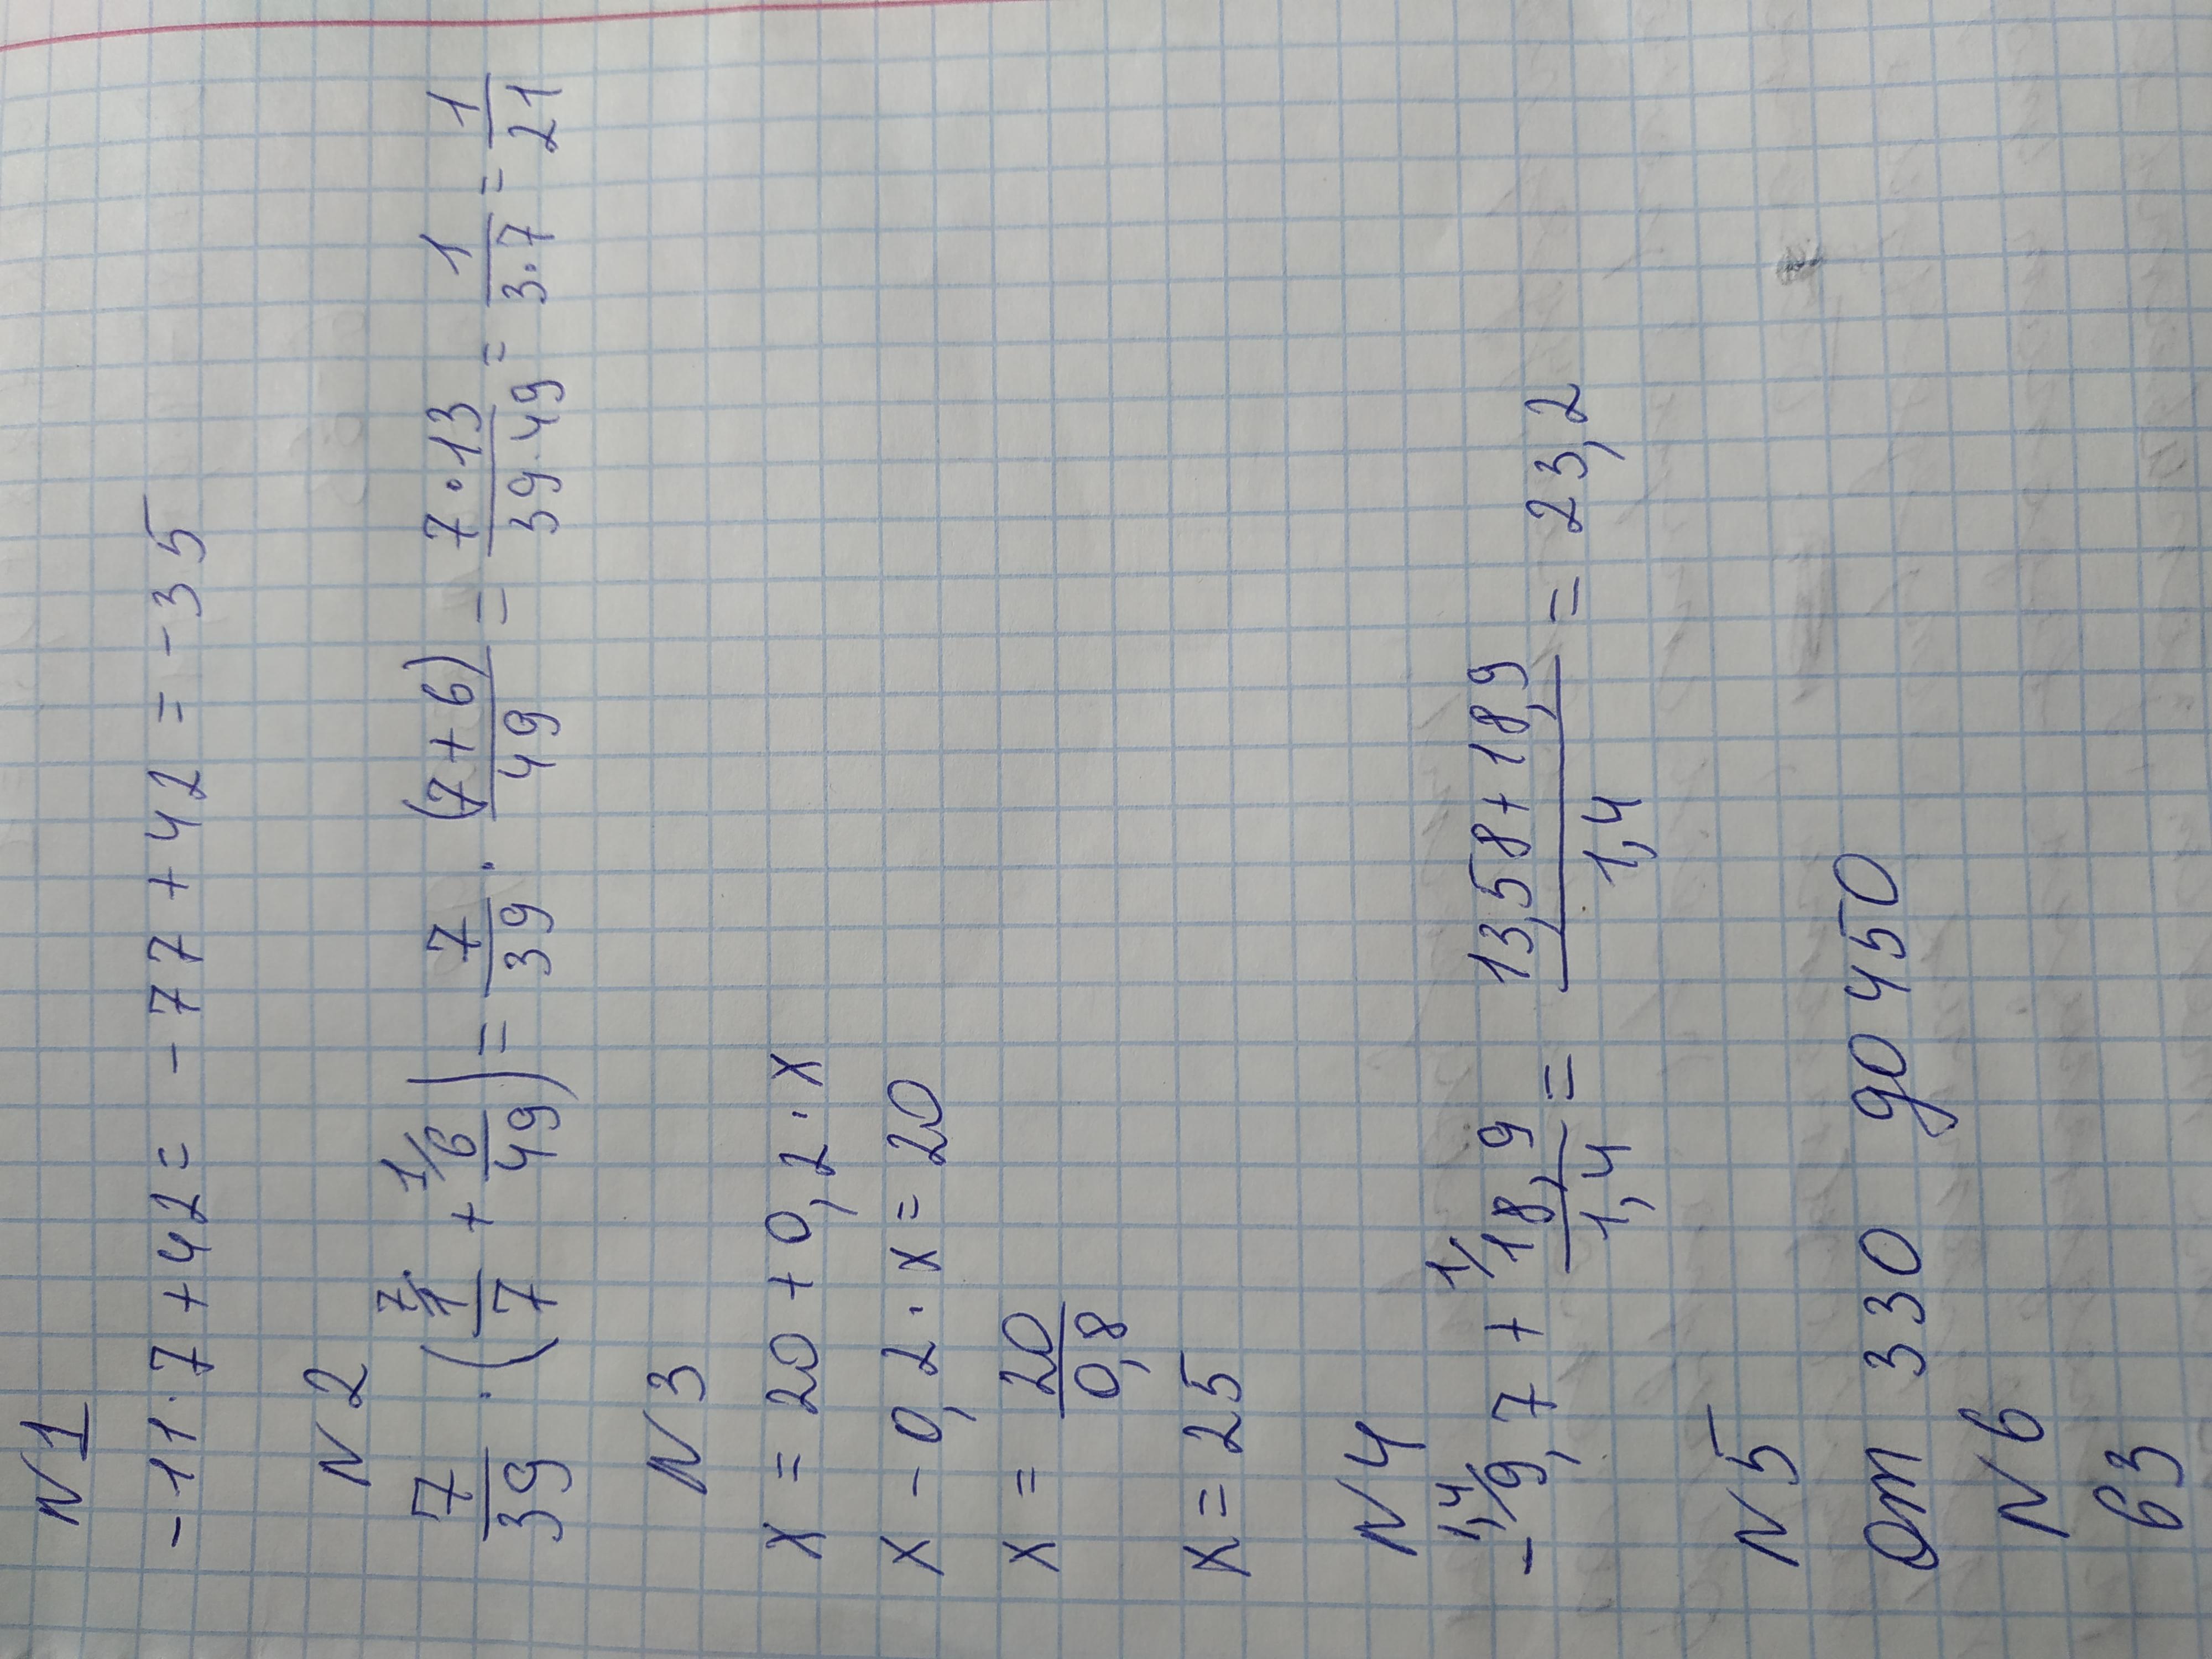 N 1
-11·7+42= -77+42 = -35
N 2
7/39 · (1/7 ⁷· + 6/49 ¹/) = 7/39 · (7+6)/49 = 7·13/39·49 = 1/3·7 = 1/21
N 3
x = 20 + 0,2 · x
x - 0,2 · x = 20
x = 20/0,8
x = 25
N 4
- ¹,⁴/9,7 + ¹/ 18,9/1,4 = 13,58+18,9/1,4 = 23,2
N 5
От 330 до 450
N 6
63